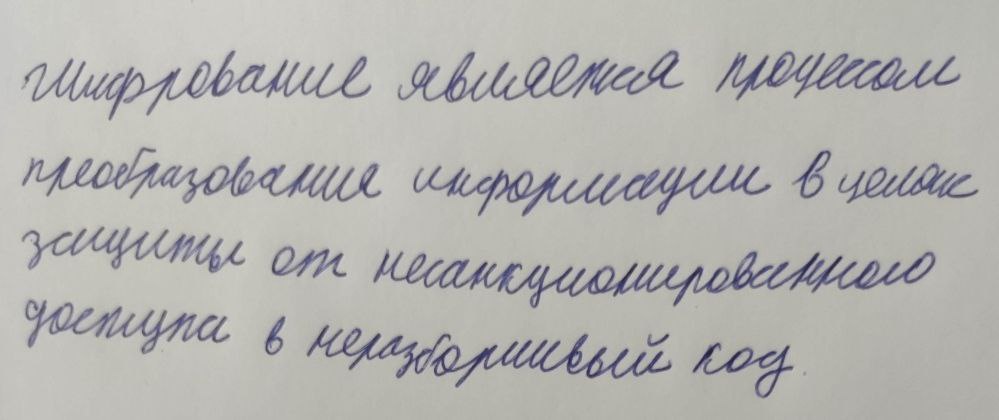 Шифрование является процессом
преобразования информации в целях
защиты от несанкционированного
доступа в неразборчивый код.